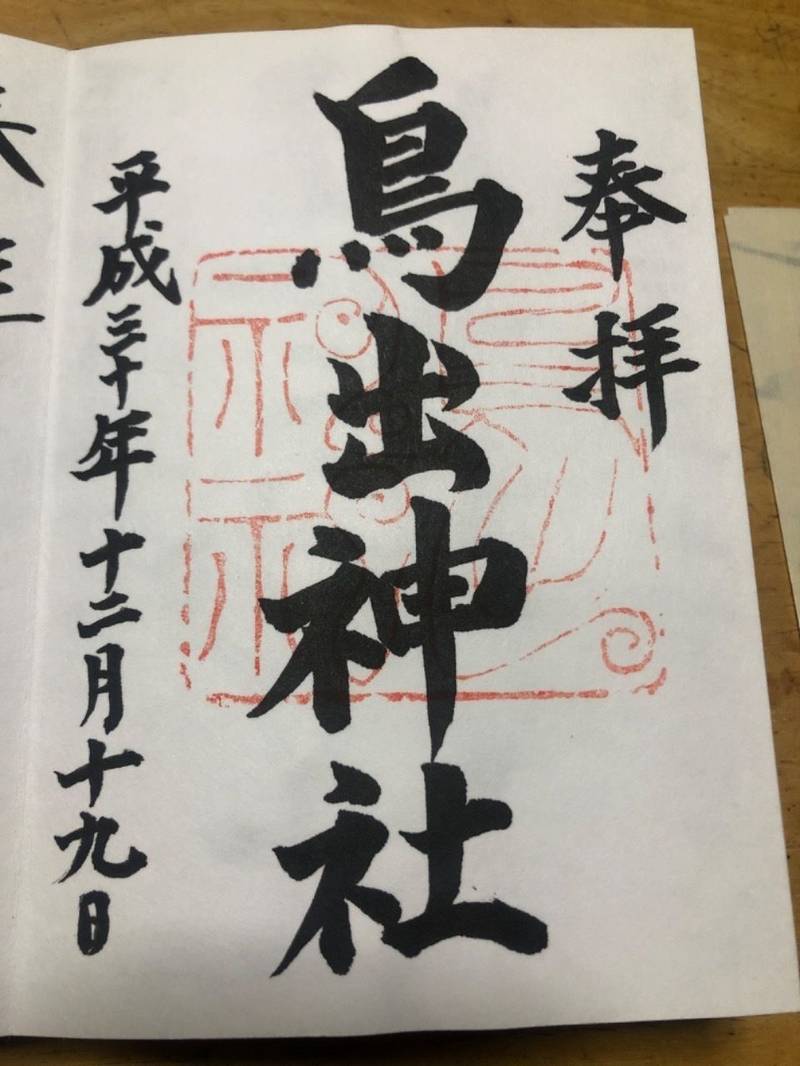 奉拝
鳥出神社
平成三十年十二月十九日